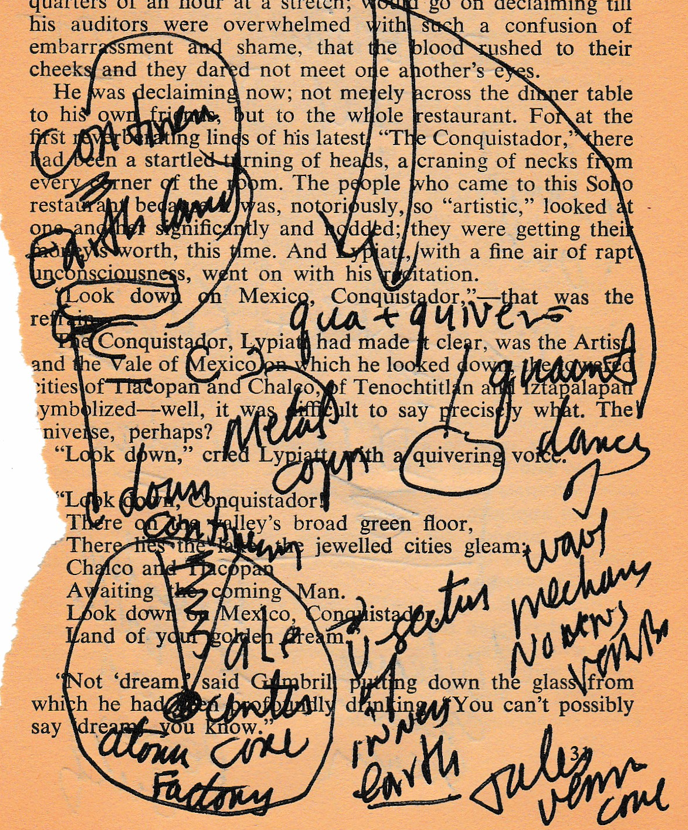 quarters of an hour at a stretch; would go on declaiming till
his auditors were overwhelmed with such a confusion of
embarrassment and shame, that the blood rushed to their
cheeks and they dared not meet one another's eyes.
He was declaiming now; not merely across the dinner table
to his own friends, but to the whole restaurant. For at the
first reverberating lines of his latest, “The Conquistador,” there
had been a startled turning of heads, a craning of necks from
every corner of the room. The people who came to this Soho
restaurant because it was, notoriously, so “artistic,” looked at
one another significantly and nodded; they were getting their
money's worth, this time. And Lypiatt, with a fine air of rapt
unconsciousness, went on with his recitation.
“Look down on Mexico, Conquistador,”—that was the
refrain.
The Conquistador, Lypiatt had made it clear, was the Artist
and the Vale of Mexico on which he looked down, the
cities of Tlacopan and Chalco, of Tenochtitlan and Iztapalapan
symbolized—well, it was difficult to say precisely what. The
universe, perhaps?
“Look down,” cried Lypiatt, with a quivering voice.
“Look down, Conquistador!
There on the valley's broad green floor,
There lies the lake; the jewelled cities gleam;
Chalco and Tlacopan
Awaiting the coming Man.
Look down on Mexico, Conquistador,
Land of your golden dream.”
“Not ‘dream,’” said Gumbril, putting down the glass from
which he had been profoundly drinking. “You can't possibly
say ‘dream,’ you know.”
Earth
qua + quivers
C
metal
down
dance
wave
mechans
no
verbs
ale
centes
atomic core
Factory
inner
earth
Jules
verne
core